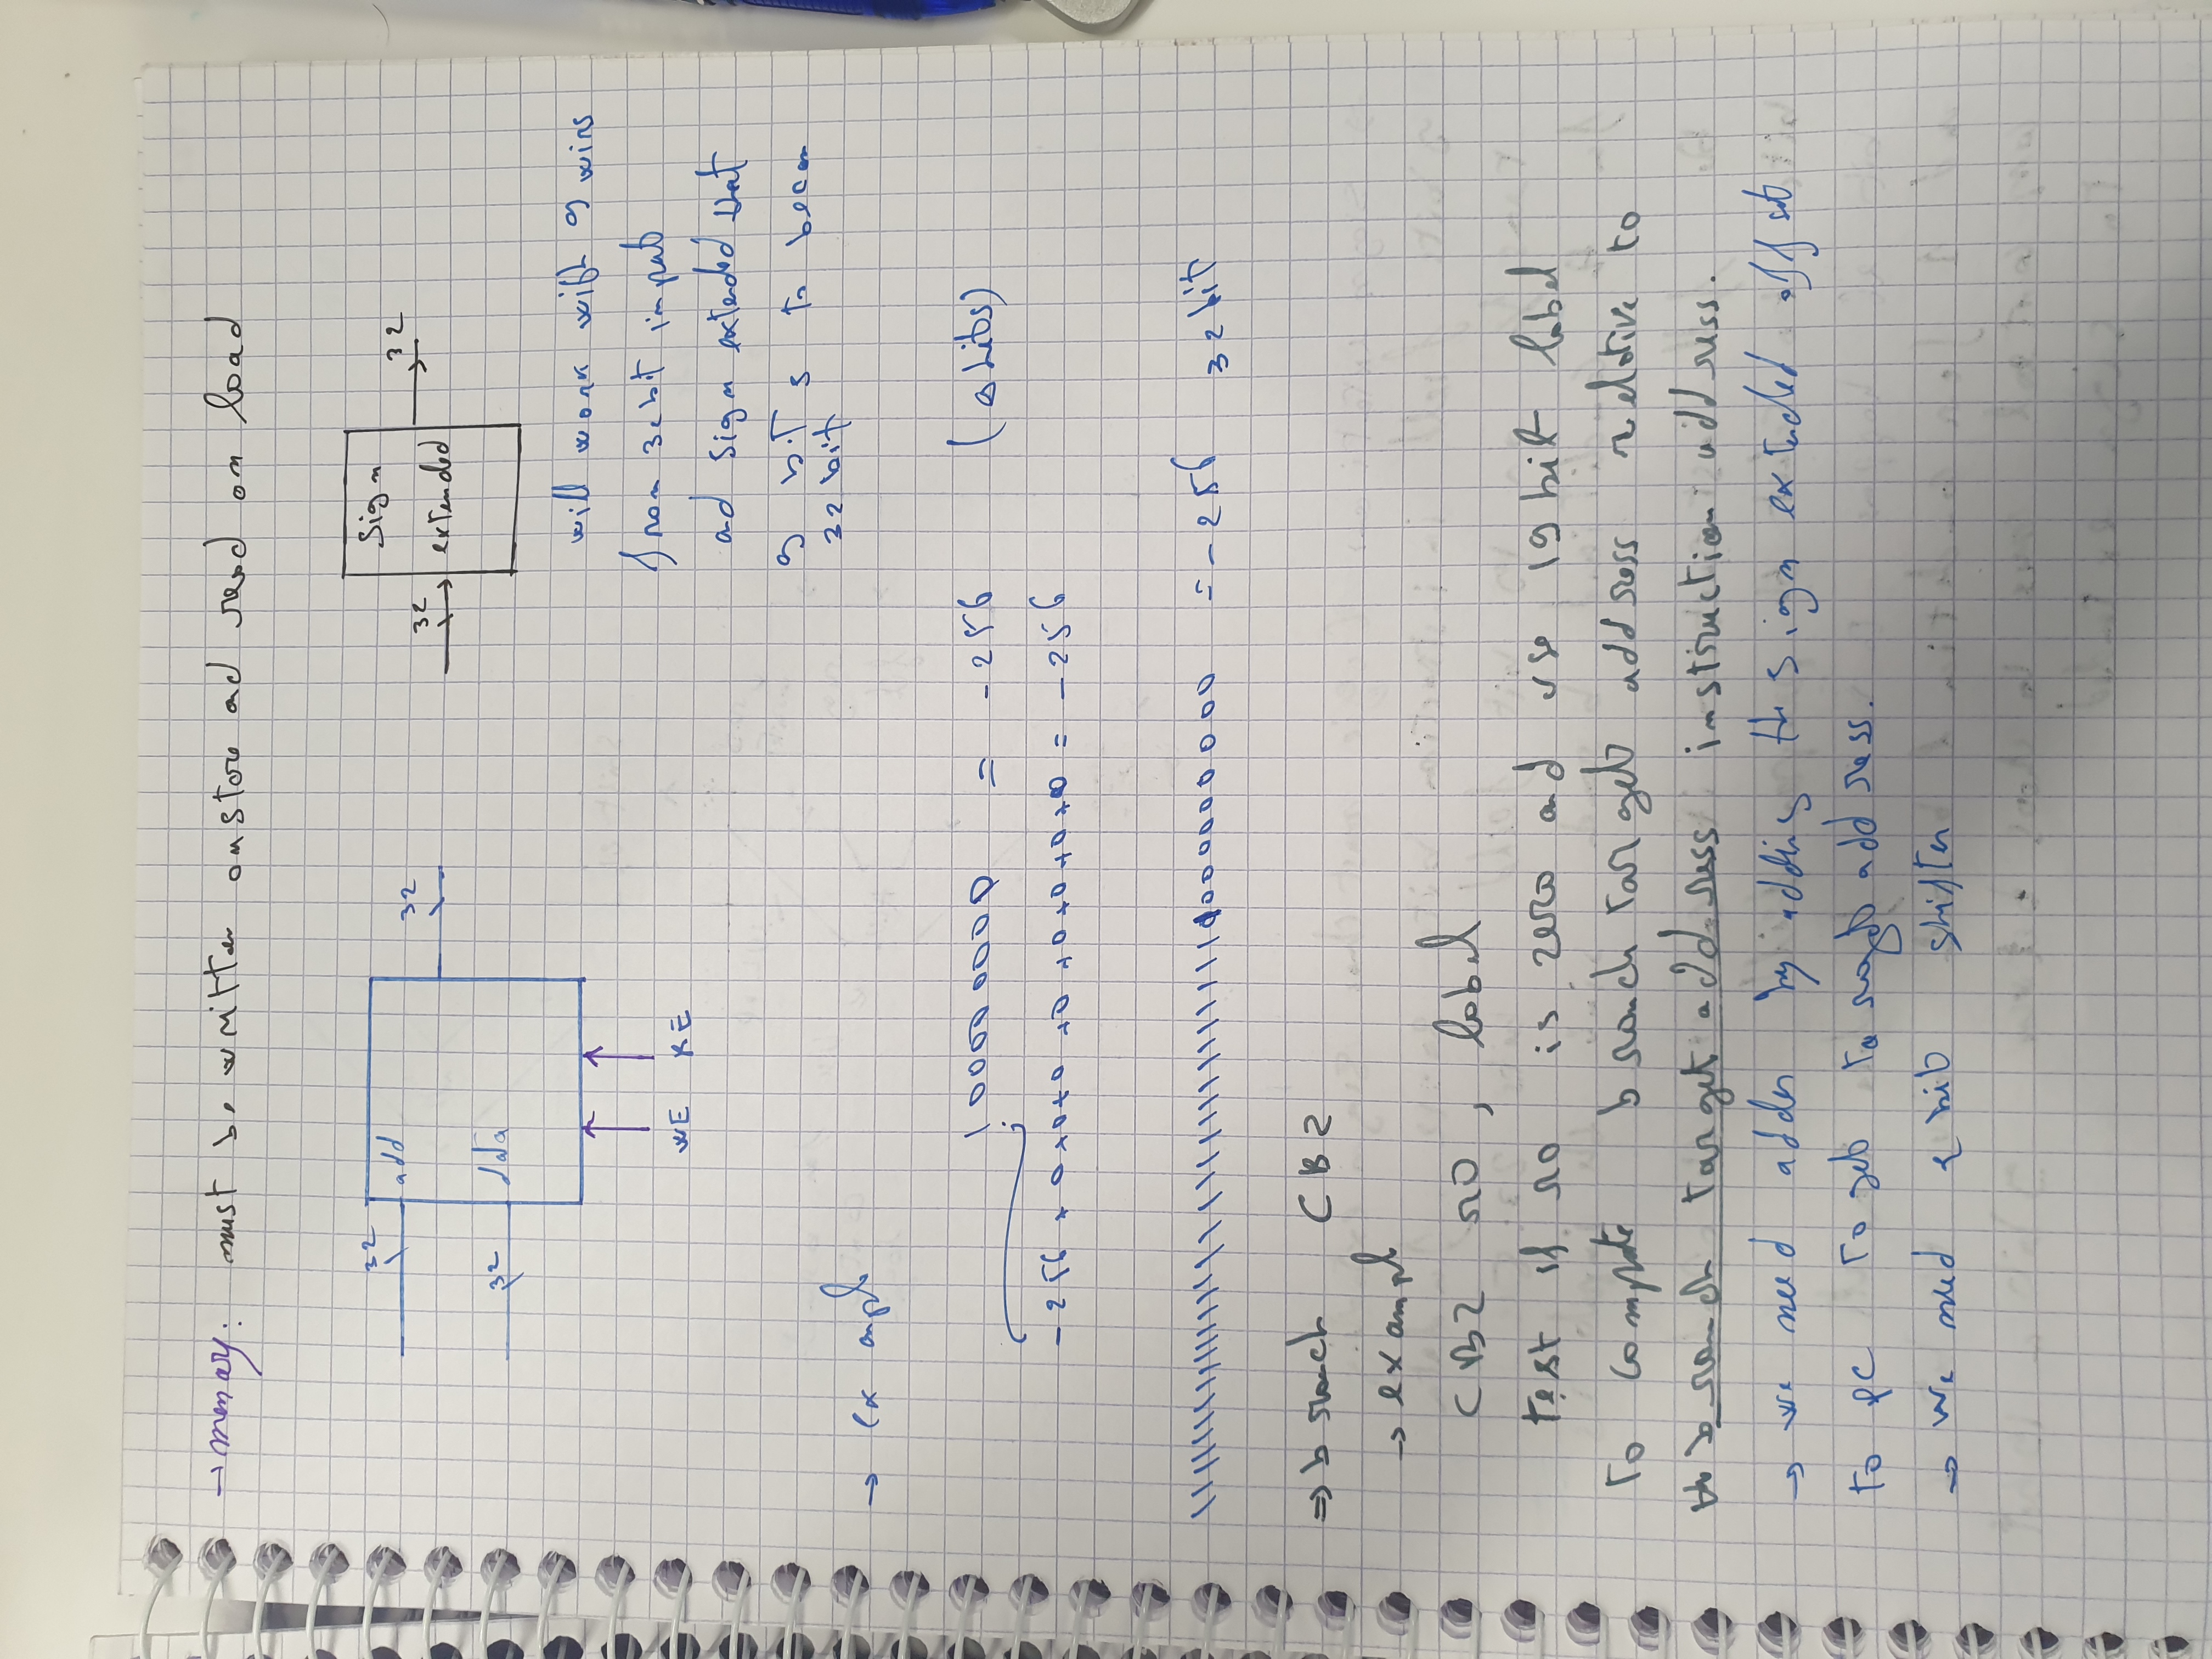 → memory: must be written on store ad read on load
32
add
32
data
32
WE RE
Sign
extended
32
32
will work with 9 wires
from 32 bit input
ad sign extended that
9 bits to becom
32 bit
→ exampl
100000000 = -256 (9 bits)
-256 + 0+0+0+0+0+0+0+0 = -256
11111111111111111111111100000000 = -256 32 bit
⇒ branch CBZ
→ exampl
CBZ r0, label
test if r0 is zero and use 19 bit label
to compute branch target address relative to
branch target address instruction address.
→ we need adder by adding the sign extended offset
to pc to get target address.
→ we need 2 bit shifter